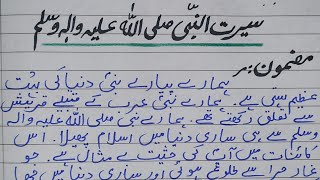 سیرت النبی صلی اللہ علیہ والہ وسلم
مضمون:۔
ہمارے پیارے نبیؐ دنیا کی بہت
عظیم ہستی ہے۔ ہمارے نبیؐ عرب کے قبیلے قریش
سے تعلق رکھتے تھے۔ ہمارے نبی صلی اللہ علیہ والہ
وسلم سے ہی ساری دنیا میں اسلام پھیلا۔ اس
کائنات میں آپؐ کی حثیت بے مثال ہے۔ جو
غار حرا سے طلوع ہوئی اور ساری دنیا میں